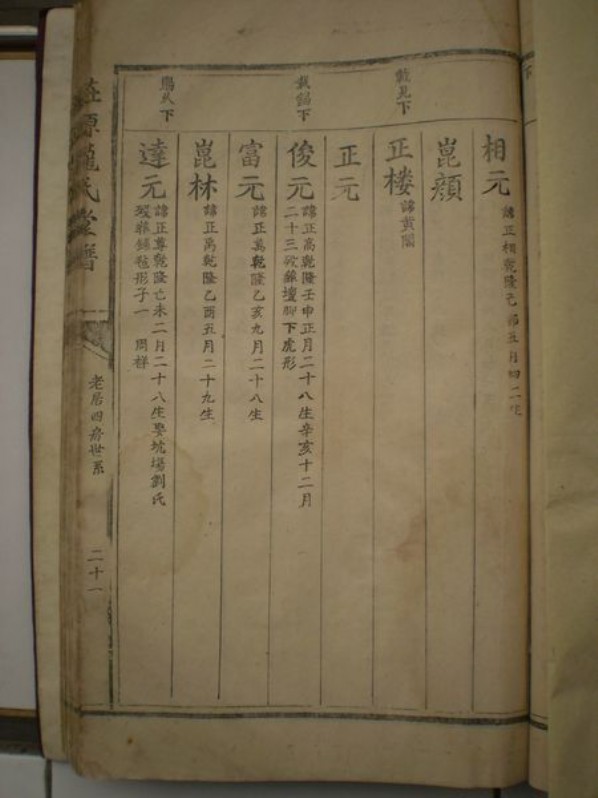 相元
諱正相乾隆己卯五月初二生
崑顏
正樓
諱黄閣
正元
俊元
諱正高乾隆壬申正月二十八生辛亥十二月
二十三歿線壇脚下虎形
富元
諱正萬乾隆乙亥九月二十八生
崑林
諱正禹乾隆乙酉五月二十九生
達元
諱正尊乾隆丁未二月二十八生娶坑場劉氏
歿葬形子一 周祥
下
下
下
氏
老居四房世系
二十一